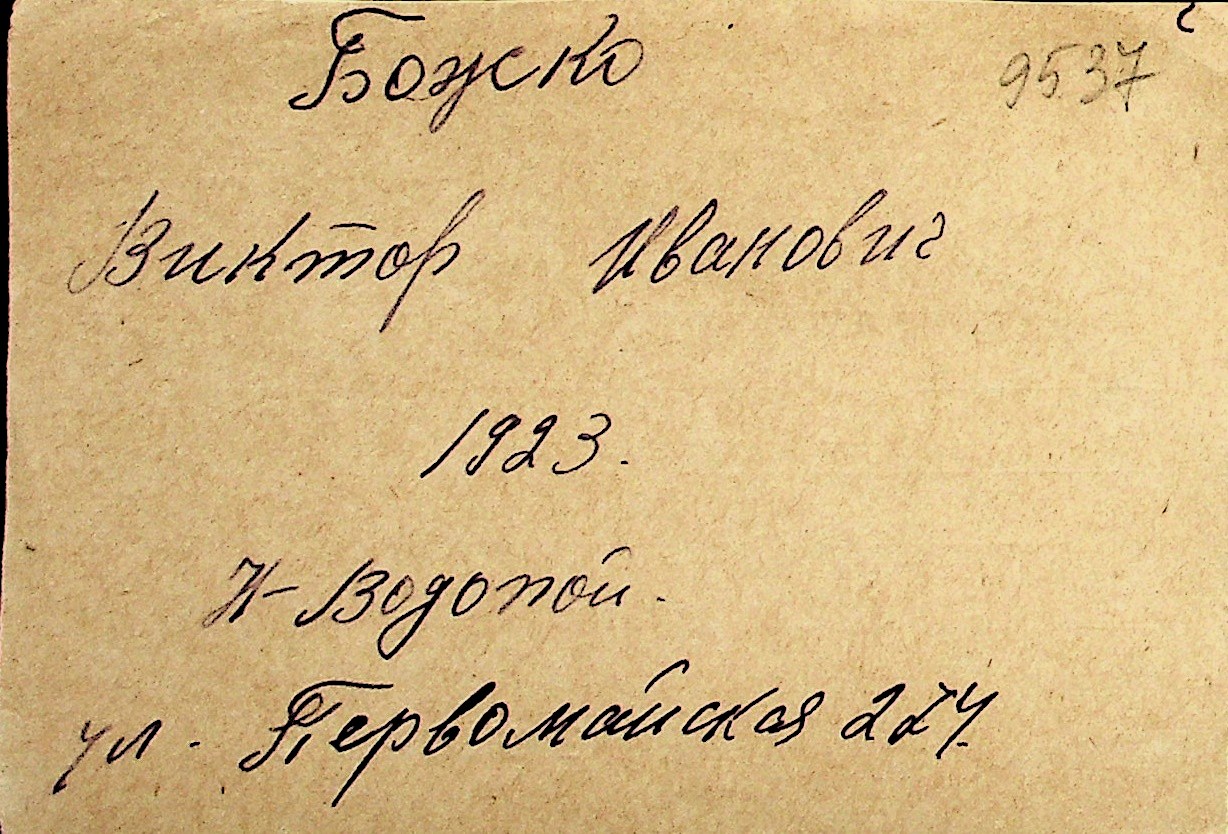 Божко 9537
Виктор Иванович
1923.
Н-Водопой.
ул. Первомайская 224.